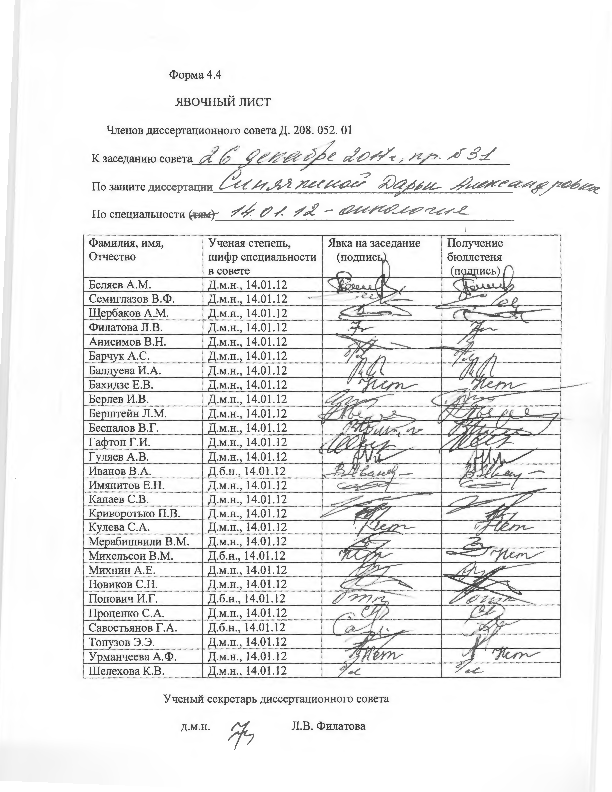 Форма 4.4
ЯВОЧНЫЙ ЛИСТ
Членов диссертационного совета Д. 208. 052. 01
К заседанию совета 26 декабря 2017г., пр. №31
По защите диссертации Синячкиной Дарьи Александровна
По специальности (там) 14.01.12 - онкология
Фамилия, имя, Отчество Ученая степень, шифр специальности в совете Явка на заседание (подпись) Получение бюллетеня (подпись)
Беляев А.М. Д.м.н., 14.01.12
Семиглазов В.Ф. Д.м.н., 14.01.12
Щербаков А.М. Д.м.н., 14.01.12
Филатова Л.В. Д.м.н., 14.01.12
Анисимов В.Н. Д.м.н., 14.01.12
Барчук А.С. Д.м.н., 14.01.12
Балдуева И.А. Д.м.н., 14.01.12
Бахидзе Е.В. Д.м.н., 14.01.12 Нет Нет
Берлев И.В. Д.м.н., 14.01.12
Берштейн Л.М. Д.м.н., 14.01.12
Беспалов В.Г. Д.м.н., 14.01.12
Гафтон Г.И. Д.м.н., 14.01.12
Гуляев А.В. Д.м.н., 14.01.12
Иванов В.А. Д.б.н., 14.01.12
Имянитов Е.Н. Д.м.н., 14.01.12
Канаев С.В. Д.м.н., 14.01.12
Криворотько П.В. Д.м.н., 14.01.12
Кулева С.А. Д.м.н., 14.01.12 Нет Нет
Мерабишвили В.М. Д.м.н., 14.01.12
Михельсон В.М. Д.б.н., 14.01.12 Нет Нет
Михнин А.Е. Д.м.н., 14.01.12
Новиков С.Н. Д.м.н., 14.01.12
Попович И.Г. Д.б.н., 14.01.12
Проценко С.А. Д.м.н., 14.01.12
Савостьянов Г.А. Д.б.н., 14.01.12
Топузов Э.Э. Д.м.н., 14.01.12
Урманчеева А.Ф. Д.м.н., 14.01.12 Нет Нет
Шелехова К.В. Д.м.н., 14.01.12
Ученый секретарь диссертационного совета
д.м.н. Л.В. Филатова